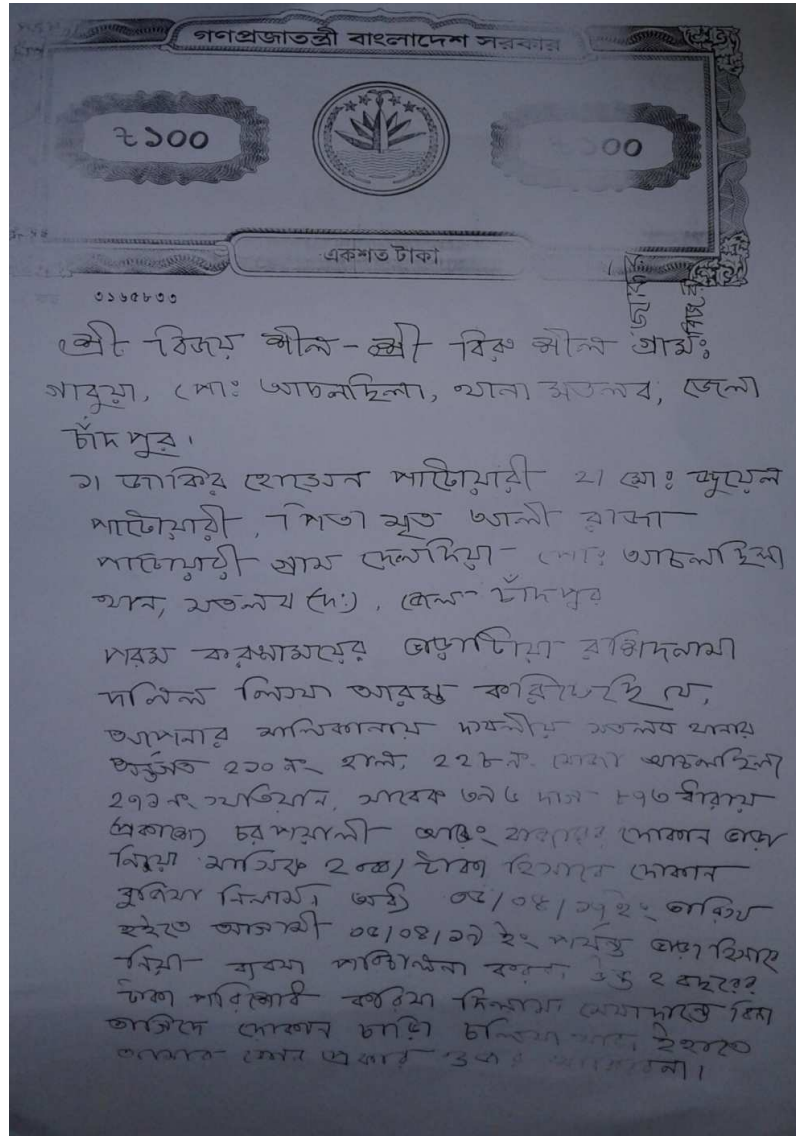 গণপ্রজাতন্ত্রী বাংলাদেশ সরকার
৳১০০
৳১০০
একশত টাকা
৩১৬৫৮৩৩
জাকির
বিজয়
শ্রী বিজয় শীল - শ্রী বিরু শীল গ্রামঃ
গাবুয়া, পোঃ আচলছিলা, থানা মতলব, জেলা
চাঁদপুর।
১। জাকির হোসেন পাটোয়ারী ২। মোঃ জুয়েল
পাটোয়ারী, পিতা মৃত আলী রাজা
পাটোয়ারী গ্রাম দেলদিয়া - পোঃ আচলছিলা
থানা, মতলব (দঃ), জেলা- চাঁদপুর
পরম করুণাময়ের ভাড়াটিয়া রশিদনামা
দলিল লিখা আরম্ভ করিতেছি যে,
আপনার মালিকানায় দখলীয় মতলব থানার
অর্ন্তগত ২১০ নং হাল, ২২৮ নং মৌজা আচলছিলা
২৭১ নং খতিয়ান, সাবেক দাগ
প্রকাশ্যে বাজারের দোকান ভাড়া
নিয়া মাসিক ২০০/ টাকা হিসাবে দোকান
বুঝিয়া নিলাম। অদ্য ০৫/০৪/১৭ ইং তারিখ
হইতে আগামী ০৫/০৪/১৯ ইং পর্যন্ত ভাড়া হিসাবে
নিয়া ব্যবসা পরিচালনা উক্ত ২ বছরের
টাকা পরিশোধ করিয়া দিলাম। মেয়াদান্তে বিনা
তাগিদে দোকান ছাড়ি চলিয়া ইহাতে
আমার কোন প্রকার